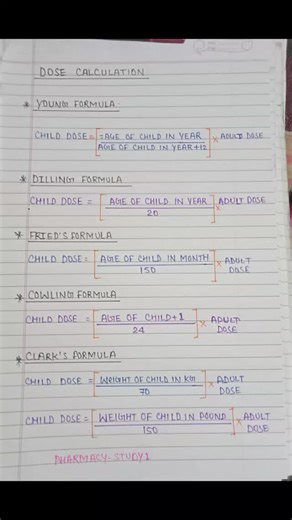 DOSE CALCULATION
* YOUNG FORMULA
CHILD DOSE = [ =AGE OF CHILD IN YEAR / AGE OF CHILD IN YEAR+12 ] × ADULT DOSE
* DILLING FORMULA
CHILD DOSE = [ AGE OF CHILD IN YEAR / 20 ] × ADULT DOSE
* FRIED'S FORMULA
CHILD DOSE = [ AGE OF CHILD IN MONTH / 150 ] × ADULT DOSE
* COWLING FORMULA
CHILD DOSE = [ AGE OF CHILD+1 / 24 ] × ADULT DOSE
* CLARK'S FORMULA
CHILD DOSE = [ WEIGHT OF CHILD IN KG / 70 ] × ADULT DOSE
CHILD DOSE = [ WEIGHT OF CHILD IN POUND / 150 ] × ADULT DOSE
PHARMACY-STUDY1